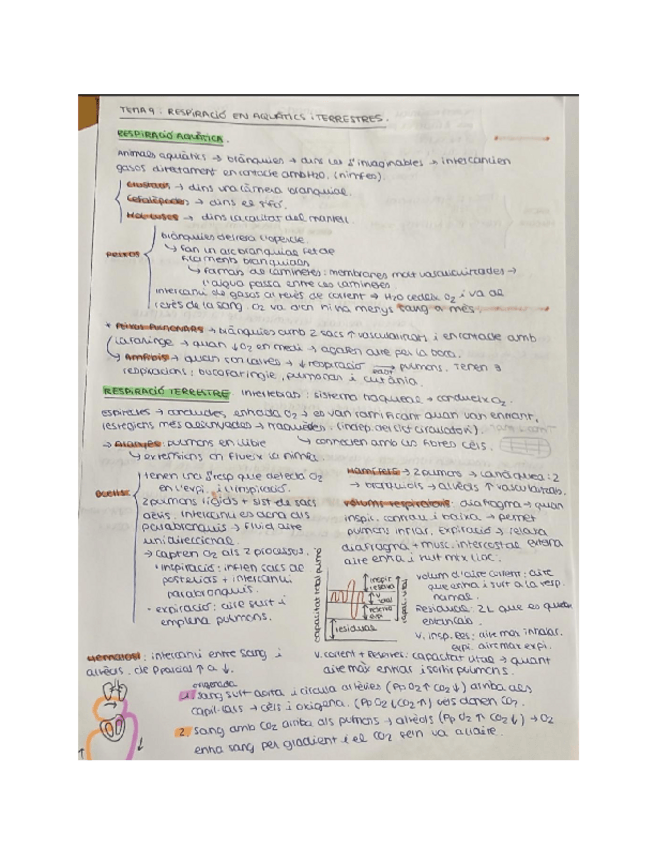 TEMA 9: RESPIRACIÓ EN AQUÀTICS I TERRESTRES.
RESPIRACIÓ AQUÀTICA.
Animals aquàtics → brànquies → dins les s'invaginables → intercanvien
gasos directament en contacte amb H2O. (nimfes).
Crustacis → dins una càmera branquial.
Cefalòpodes → dins el sifó.
Mol·luscs → dins la cavitat del mantell.
Peixos
brànquies darrera l'opercle.
↳ Fan un arc branquial fet de
filaments branquials
↳ formats de laminetes: membranes molt vascularitzades →
l'aigua passa entre les laminetes.
intercanvi de gasos a través de corrent → H2O cedeix O2 i va al
revés de la sang. O2 va d'on hi ha menys sang a més.
* Peixos Pulmonars → brànquies amb 2 sacs ↑ vascularitzats i en contacte amb
la faringe → quan ↓O2 en medi → agafen aire per la boca.
↳ Amfibis → quan són larves → ↓ respiració → pulmons. Tenen 3
respiracions: bucofaringie, pulmonar i cutània.
RESPIRACIÓ TERRESTRE Invertebrats: sistema traqueal → condueix O2.
espiracles → conductes, entrada O2 → es van ramificant quan van entrant,
les regions més allunyades → traquèoles. (indep. del sist circulatori).
→ Aranyes: pulmons en llibre ↳ connecten amb les fibres cèls.
↳ extensions on flueix la
Ocells
Tenen una resp que detecta O2
en l'expi. i l'inspiració.
2 pulmons rígids + sist de sacs
aeris. Intercanvi es dona als
parabronquis → fluid aire
unidireccional.
→ capten O2 als 2 processos.
• inspiració: inflen sacs ae
posteriors + intercanvi
parabronquis.
• expiració: aire surt i
emplena pulmons.
Mamífers → 2 pulmons → tràquea: 2
→ bronquiols → alvèols ↑ vascularitzats.
Volums respiratoris: diafragma → quan
inspir. contrau i baixa → permet
pulmons inflar. Expiració → relaxa
diafragma + musc. intercostal externa
aire entra i surt
capacitat total pulmó
inspir
reserva
V
total
reserva
expi
residual
capi. vital
volum d'aire corrent: aire
que entra i surt a la resp.
normal.
Residual: 2L que es queden
estancats.
V. insp. Res: aire max inhalar.
expi. aire max expi.
V. corrent + Reserves: capacitat vital → quant
aire max entrar i sortir pulmons.
Hematosi: intercanvi entre sang i
alvèols. de Pparcial ↑ a ↓.
oxigenada
1 sang surt aorta i circula artèries (Pp O2 ↑ CO2 ↓) arriba als
capil·lars → cèls i oxigena. (Pp O2 ↓ CO2 ↑) cèls donen CO2.
2 Sang amb CO2 arriba als pulmons → alvèols (Pp O2 ↑ CO2 ↓) → O2
entra sang per gradient i el CO2 se'n va a l'aire.